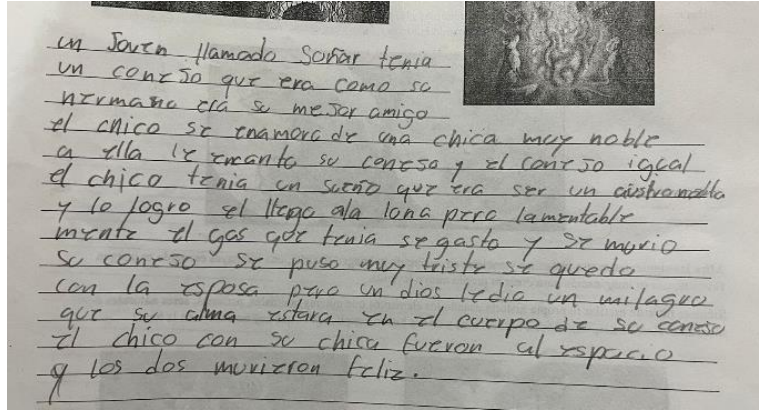 un Joven llamado Soñar tenia
un conejo que era como su
hermano era su mejor amigo
el chico se enamora de una chica muy noble
a ella le encanto su conejo y el conejo igual
el chico tenia un sueño que era ser un austronauta
y lo logro el llego ala lona pero lamentable
mente el gas que tenia se gasto y se murio
su conejo se puso muy triste se quedo
con la esposa pero un dios le dio un milagro
que su alma estara en el cuerpo de su conejo
el chico con su chica fueron al espacio
y los dos murieron feliz.